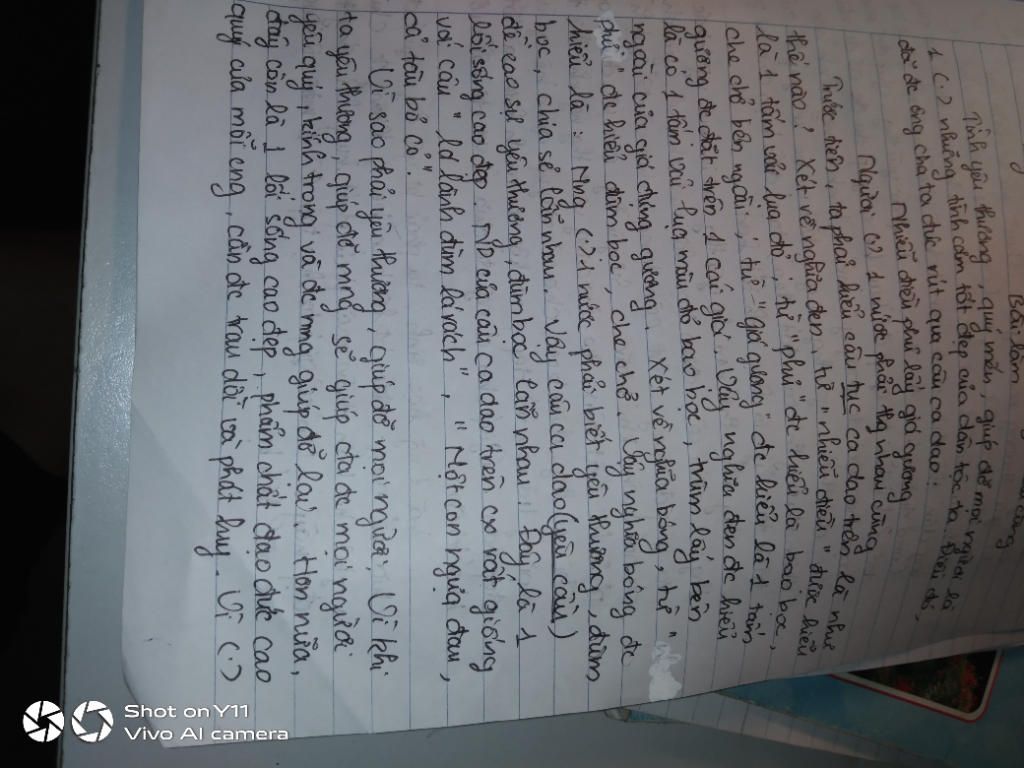 Bài làm
Tình yêu thương, quý mến, giúp đỡ mọi người là
1 (.) những tình cảm tốt đẹp của dân tộc ta. Điều đó,
đã đc ông cha ta đúc rút qua câu ca dao:
Nhiễu điều phủ lấy giá gương
Người (.) 1 nước phải thg nhau cùng
Trước tiên, ta phải hiểu câu tục ca dao trên là như
thế nào? Xét về nghĩa đen, từ "nhiễu điều" được hiểu
là 1 tấm vải lụa đỏ, từ "phủ" đc hiểu là bao bọc,
che chở bên ngoài, từ "giá gương" đc hiểu là 1 tấm
gương đc đặt trên 1 cái giá. Vậy nghĩa đen đc hiểu
là có 1 tấm vải lụa màu đỏ bao bọc, trùm lấy bên
ngoài của giá đựng gương. Xét về nghĩa bóng, từ "
phủ" đc hiểu đùm bọc, che chở. Vậy nghĩa bóng đc
hiểu là: Mng (.) 1 nước phải biết yêu thương, đùm
bọc, chia sẻ lẫn nhau. Vậy câu ca dao (yêu cầu)
đề cao sự yêu thương, đùm bọc lẫn nhau. Đây là 1
lối sống cao đẹp. ND của câu ca dao trên co rất giống
với câu "lá lành đùm lá rách", "Một con ngựa đau,
cả tàu bỏ cỏ".
Vì sao phải yêu thương, giúp đỡ mọi người? Vì khi
ta yêu thương, giúp đỡ mng sẽ giúp cta đc mọi người
yêu quý, kính trọng và đc mng giúp đỡ lại. Hơn nữa,
đây còn là 1 lối sống cao đẹp, phẩm chất đạo đức cao
quý của mỗi cng, cần đc trau dồi và phát huy. Vì (.)
Shot on Y11
Vivo AI camera